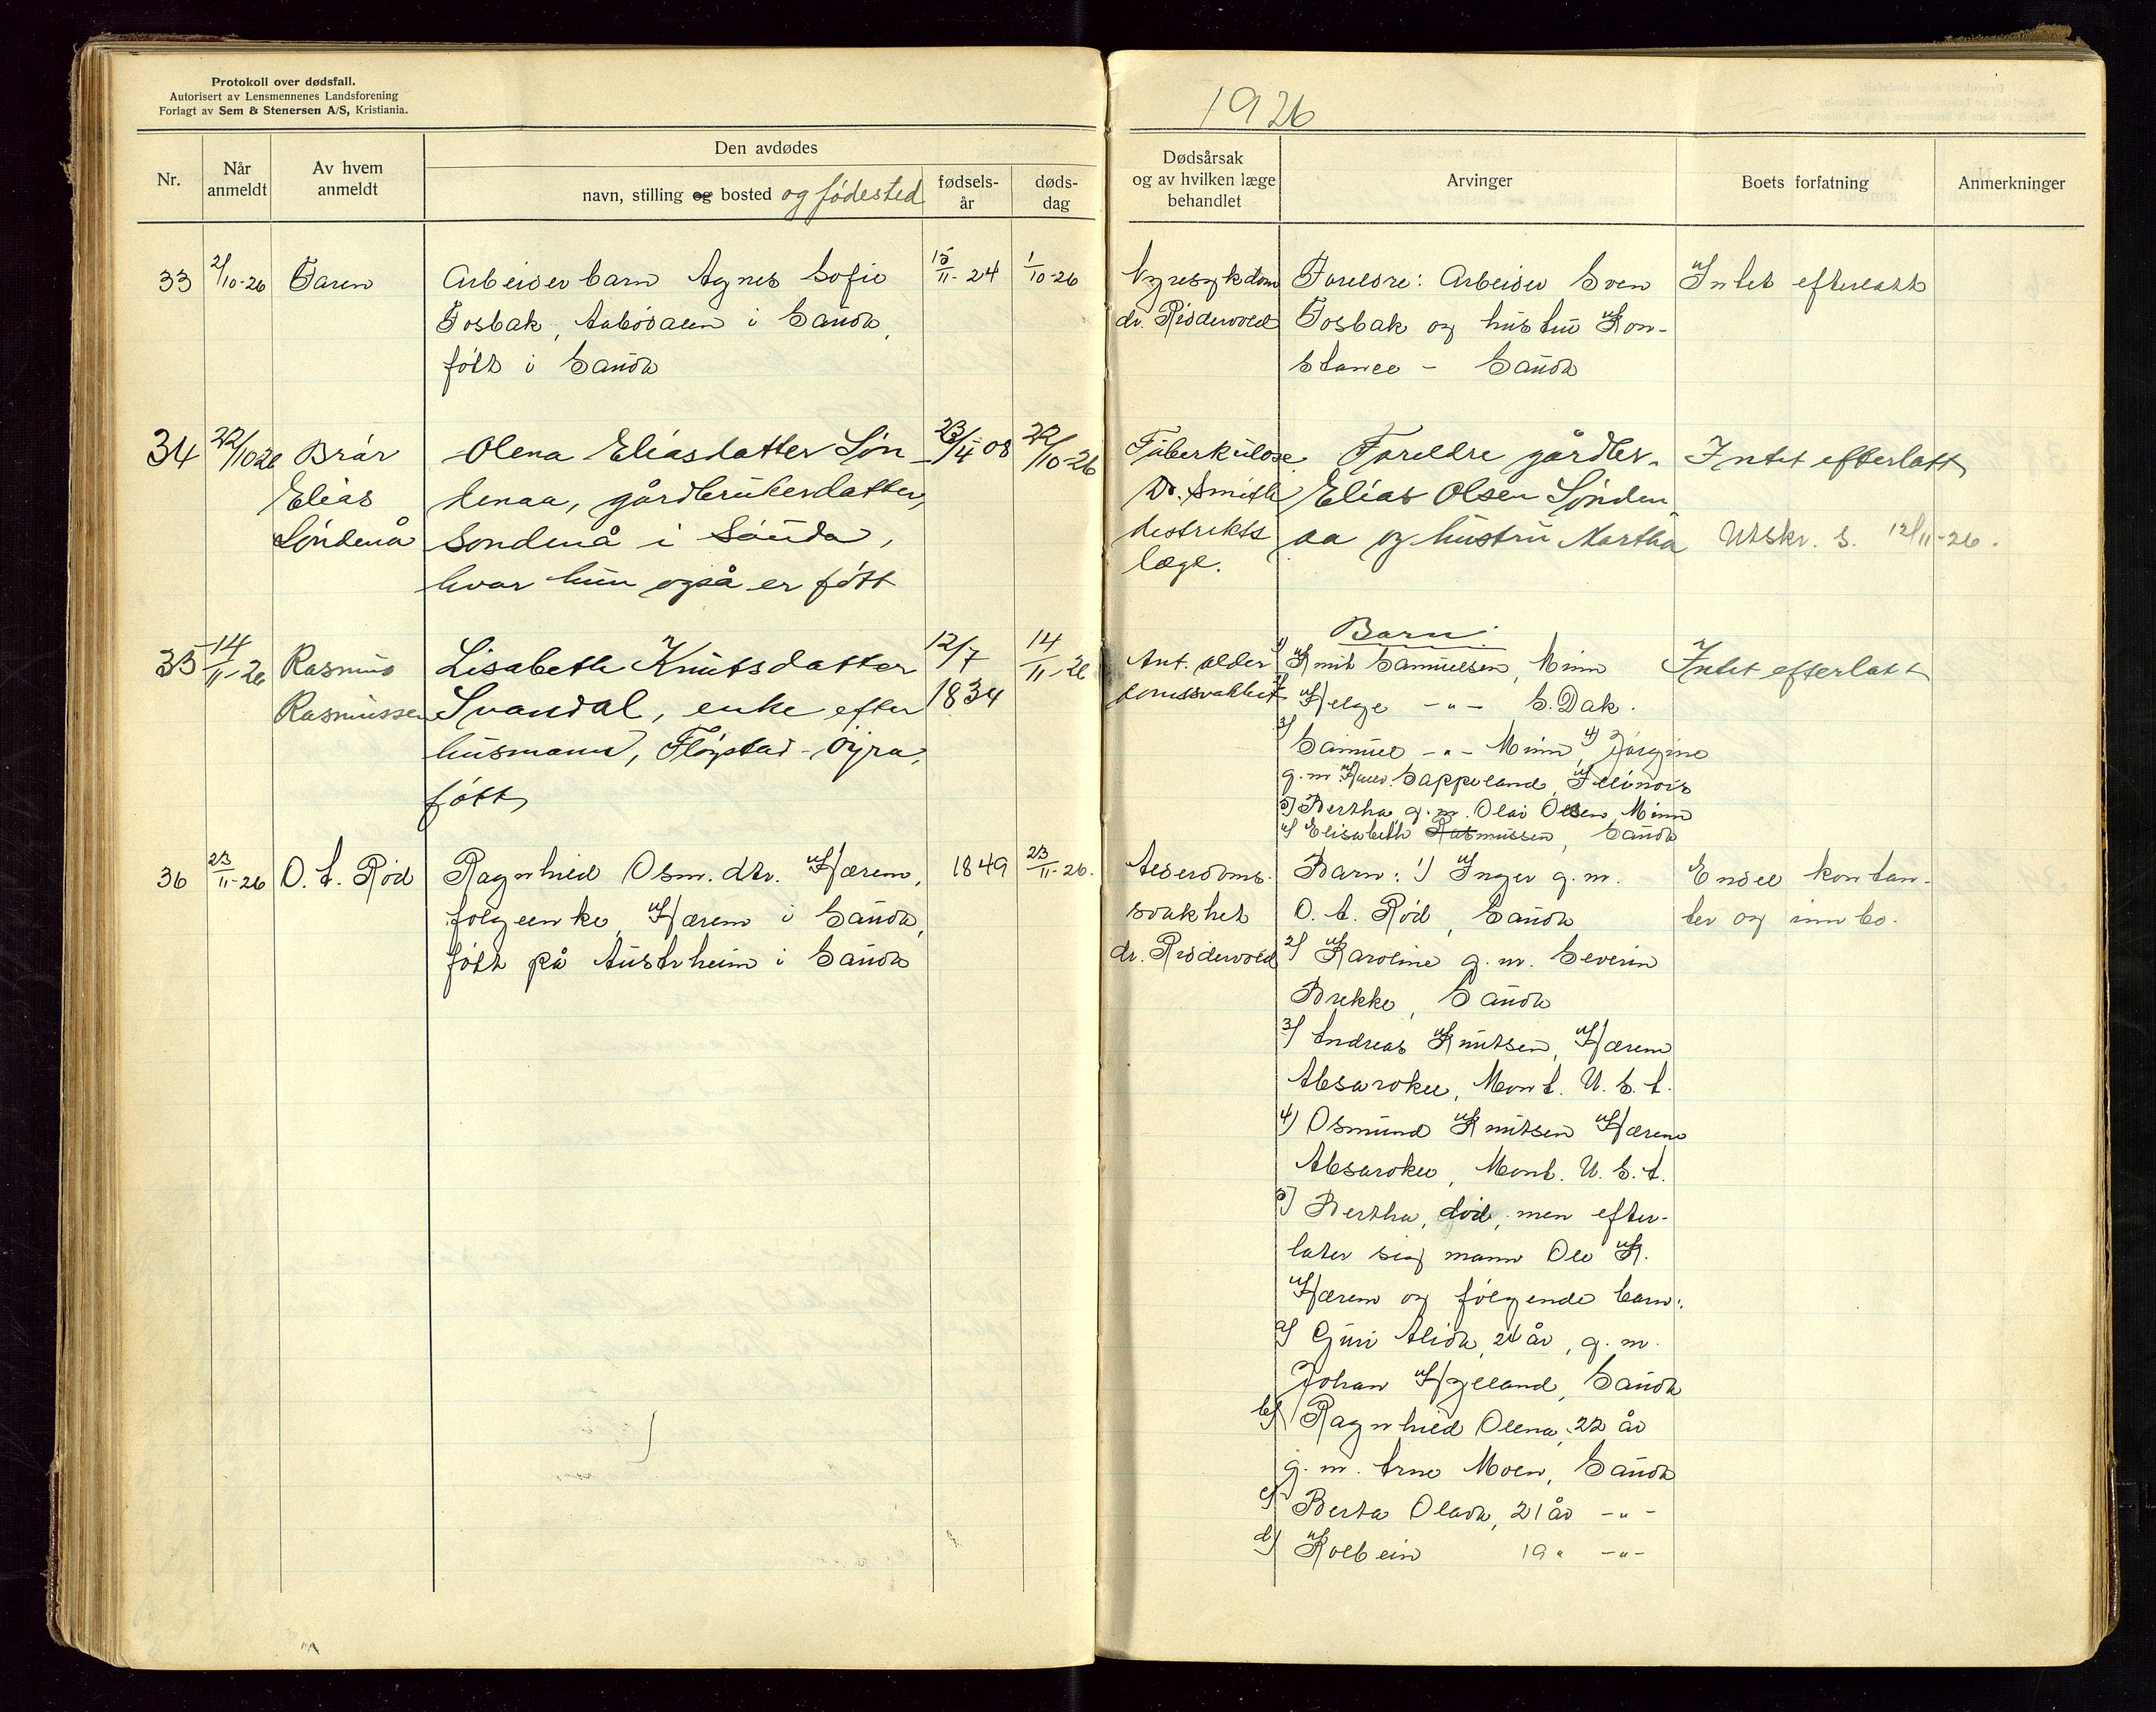 Protokoll over dødsfall.
Autorisert av Lensmennenes Landsforening
Forlagt av Sem & Stenersen A/S, Kristiania.
1926
Nr.
Når anmeldt
Av hvem anmeldt
Den avdødes
navn, stilling og bosted og fødested
fødsels-år
døds-dag
Dødsårsak
og av hvilken læge
behandlet
Arvinger
Boets forfatning
Anmerkninger
33 2/10-26 Faren Arbeiderbarn Agnes Sofie 15/11-24 1/10-26
Fosbak, Aabødalen i Sauda,
født i Sauda
Nyresykdom
dr. Ridderwold
Foreldre: Arbeider Sven
Fosbak og hustru Kon-
stance - Sauda
Intet efterlatt
34 22/10 26 Bror Olena Eliasdatter Søn 23/4-08 22/10-26
Elias denaa, gårdbrukerdatter,
Søndenå Søndenå i Sauda,
hvor hun også er født
Tuberkulose
Dr. Smith
distrikts
læge.
Foreldre gårdbr.
Elias Olsen Sønden
aa og hustru Martha
Intet efterlatt
Utskr. s. 12/11-26.
35 14/11-26 Rasmus Lisabeth Knutsdatter 12/7 14/11-26
Rasmussen Svandal, enke efter 1834
husmann, Fløgstad-Øyra,
født
Ant. alder
domssvakhet
Barn:
1) Knut Samuelsen, Minn
2) Helge -"- S. Dak.
3) Samuel -"- Minn 4) Jørgine
g.m. Sappeland, Illinois
5) Bertha g.m. Olai Olsen, Minn
6) Elisabeth Rasmussen, Sauda
Intet efterlatt
36 23/11-26 O. A. Rød Ragnhild Osm. dtr. Hærem, 1849 23/11-26.
følgeenke, Hærem i Sauda,
født på Austrheim i Sauda
Alderdoms-
svakhet
dr. Ridderwold
Barn: 1) Inger g.m.
O. A. Rød, Sauda
2) Karoline g.m. Severin
Brekke, Sauda
3) Andreas Knutsen, Hærem
Absarokee, Mont. U.S.A.
4) Osmund Knutsen Hærem
Absarokee, Mont. U.S.A.
5) Bertha, død, men efter-
later sig mann Ole K.
Hærem og følgende barn:
a) Guri Alida, 24 år, g.m.
Johan Hylland, Sauda
b) Ragnhild Olena, 22 år
g.m. Arne Moen, Sauda
c) Berta Olava, 21 år -"-
d) Kolbein 19 " -"-
Endel kontan-
ter og innbo.